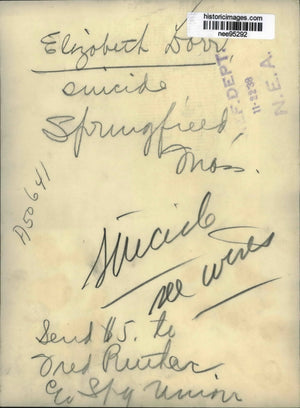 historicimages.com
nee95292
Elizabeth Dorr
suicide,
Springfield,
Mass.
REF. DEPT.
11-22-38
N.E.A.
A50641
suicide
see wires
Send $5. to
Fred
c/o Spg Union